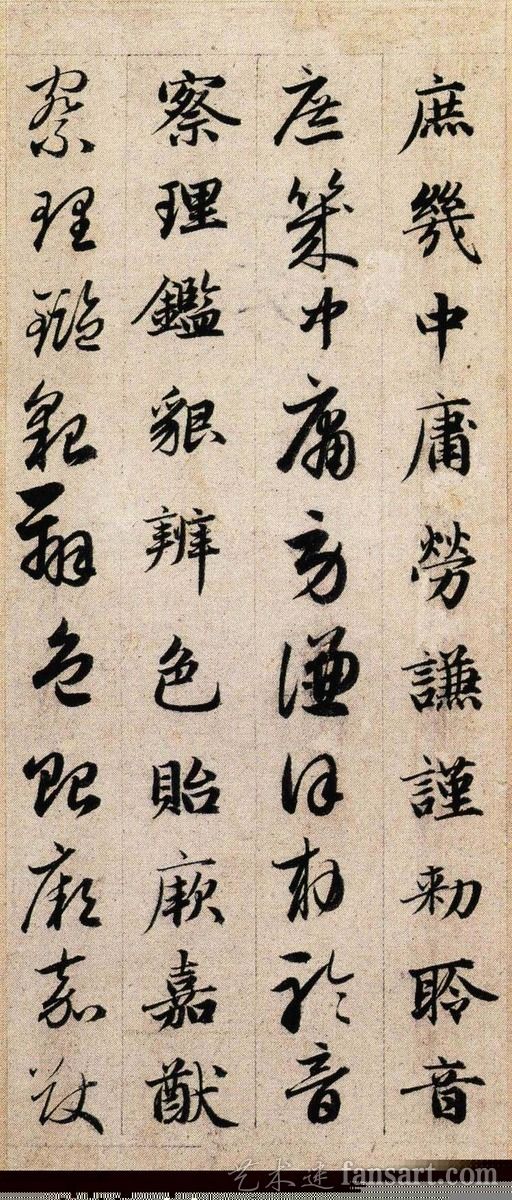 庶幾中庸勞謙謹勅聆音
庶幾中庸勞謙謹勅聆音
察理鑑貌辨色貽厥嘉猷
察理鑑貌辨色貽厥嘉猷
艺术迷 fansart.com